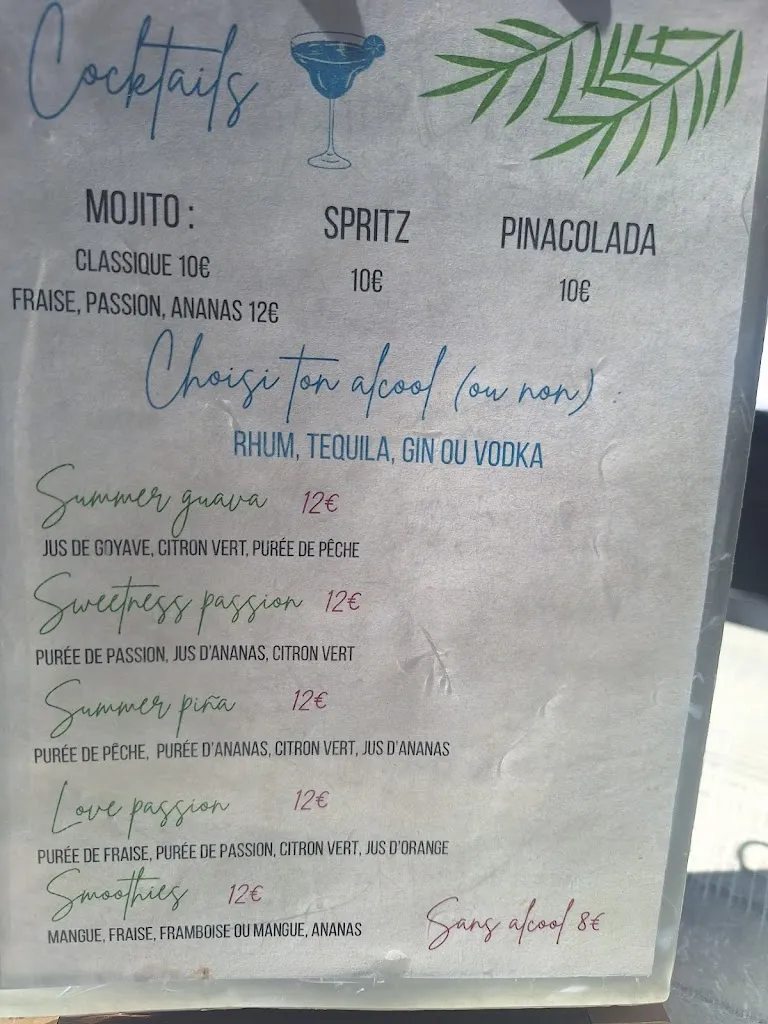 Cocktails
MOJITO :
CLASSIQUE 10€
FRAISE, PASSION, ANANAS 12€
SPRITZ
10€
PINACOLADA
10€
Choisi ton alcool (ou non) :
RHUM, TEQUILA, GIN OU VODKA
Summer guava 12€
JUS DE GOYAVE, CITRON VERT, PURÉE DE PÊCHE
Sweetness passion 12€
PURÉE DE PASSION, JUS D'ANANAS, CITRON VERT
Summer piña 12€
PURÉE DE PÊCHE, PURÉE D'ANANAS, CITRON VERT, JUS D'ANANAS
Love passion 12€
PURÉE DE FRAISE, PURÉE DE PASSION, CITRON VERT, JUS D'ORANGE
Smoothies 12€
MANGUE, FRAISE, FRAMBOISE OU MANGUE, ANANAS
Sans alcool 8€